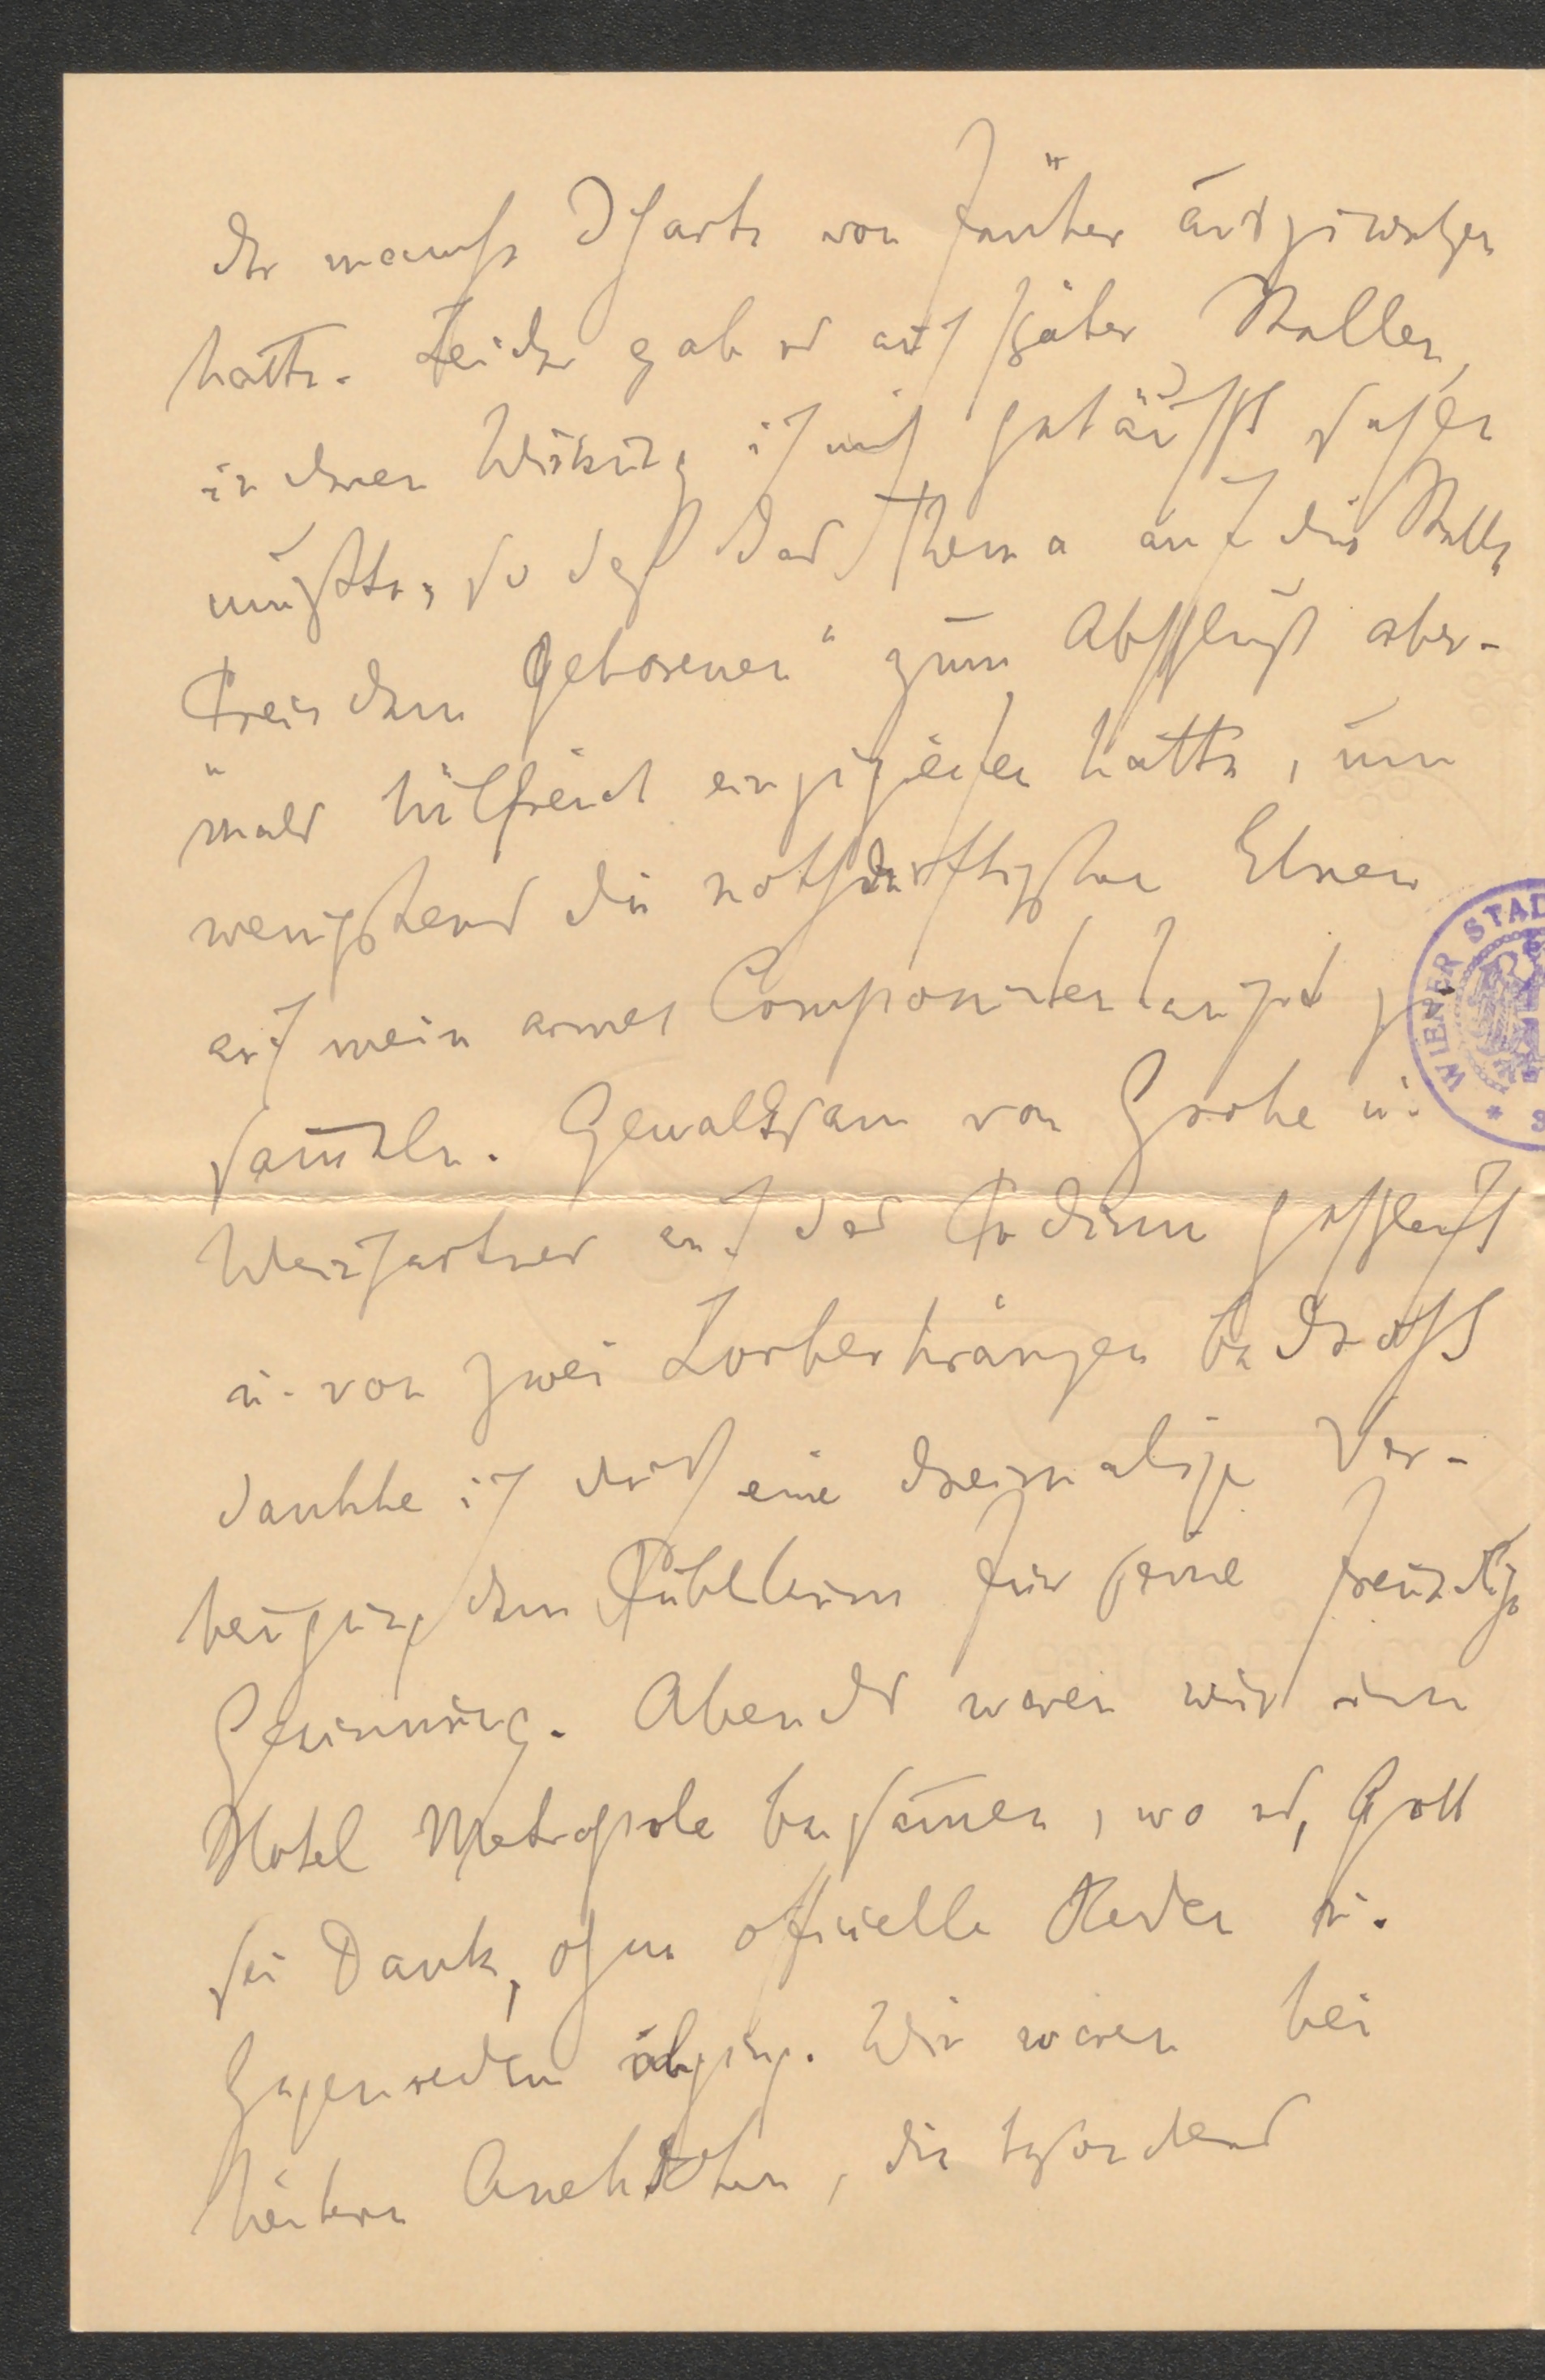 der manche Scharte von früher auszuwetzen
hatte. Leider gab es auch später Stellen,
in deren Wirkung ich mich getäuscht sehen
mußte, so daß das Thema auf die Stelle
"Preis dem Geborenen" zum Abschluß aber-
mals hilfreich einzugreifen hatte, um
wenigstens die nothdürftigsten Ehren
auf mein armes Componistenhaupt zu
sam̅eln. Gewaltsam von Grohe u.
Weingartner auf das Podium geschleift
u. von zwei Lorberkränzen bedroht
dankte ich durch eine dreimalige Ver-
beugung dem Publikum für seine freundliche
Gesinnung. Abends waren wir im
Hotel Metropole beisam̅en, wo es, Gott
sei Dank, ohne officielle Reden u.
Gegenreden abging. Wir waren bei
heitern Anekdoten, die besonders
WIENER STAD